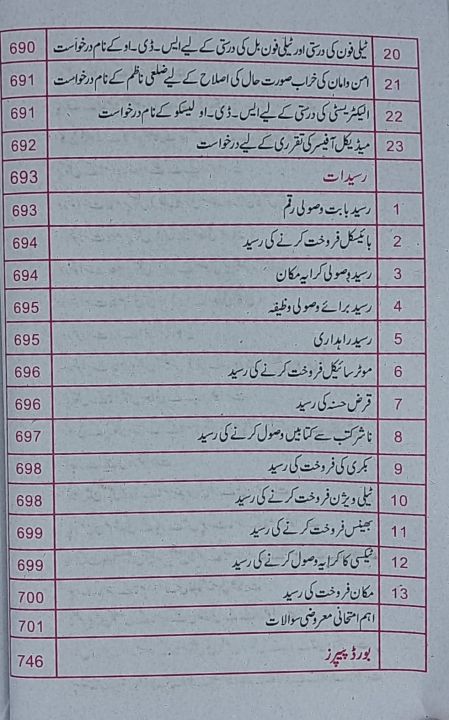 20 ٹیلی فون کی درستی اور ٹیلی فون بل کی درستی کے لیے ایس۔ڈی۔او کے نام درخواست 690
21 امن و امان کی خراب صورت حال کی اصلاح کے لیے ضلعی ناظم کے نام درخواست 691
22 الیکٹریسٹی کی درستی کے لیے ایس۔ڈی۔او لیسکو کے نام درخواست 691
23 میڈیکل آفیسر کی تقرری کے لیے درخواست 692
رسیدات 693
1 رسید بابت وصولی رقم 693
2 بائیسکل فروخت کرنے کی رسید 694
3 رسید وصولی کرایہ مکان 694
4 رسید برائے وصولی وظیفہ 695
5 رسید راہداری 695
6 موٹر سائیکل فروخت کرنے کی رسید 696
7 قرض حسنہ کی رسید 696
8 ناشر کتب سے کتابیں وصول کرنے کی رسید 697
9 بکری کی فروخت کی رسید 698
10 ٹیلی ویژن فروخت کرنے کی رسید 698
11 بھینس فروخت کرنے کی رسید 699
12 ٹیکسی کا کرایہ وصول کرنے کی رسید 699
13 مکان فروخت کی رسید 700
اہم امتحانی معروضی سوالات 701
بورڈ پیپرز 746